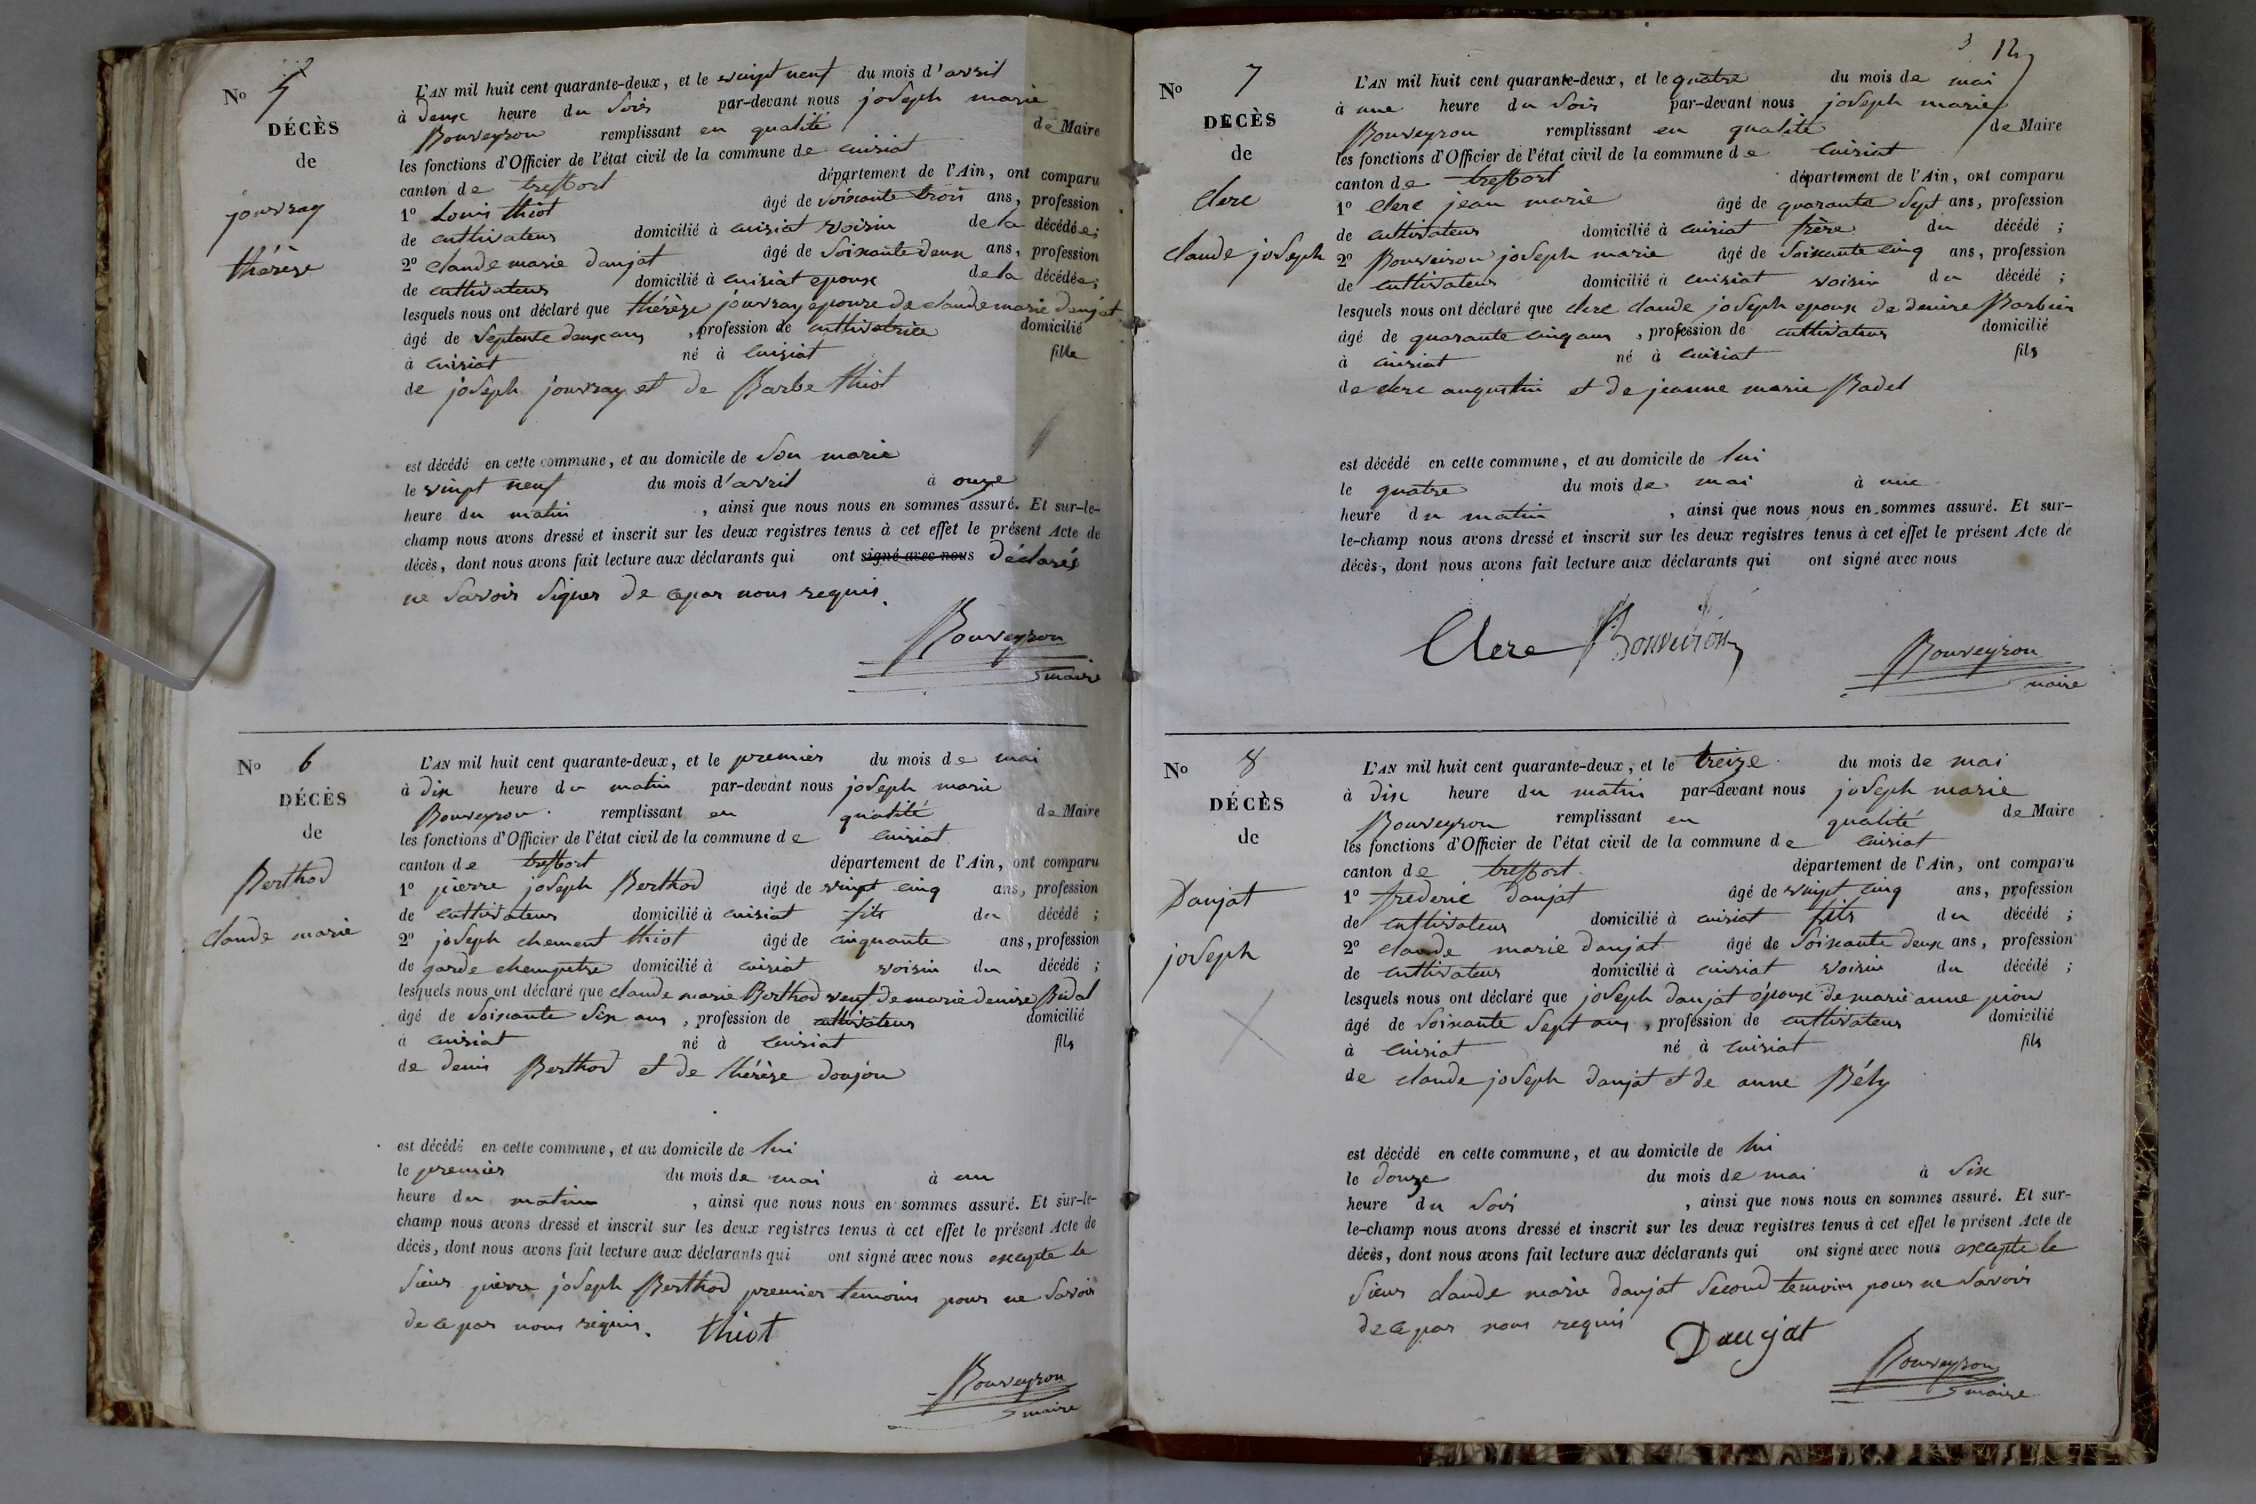 No 5
DÉCÈS
de
jouvray
thérèse
L'AN mil huit cent quarante-deux, et le vinpt neuf du mois d'avril
à deux heure du soir par-devant nous joseph marie
Bouveyron remplissant en qualité de Maire
les fonctions d'Officier de l'état civil de la commune de cuisiat
canton de treffort département de l'Ain, ont comparu
1º Louis thiot âgé de soixante trois ans, profession
de cultivateur domicilié à cuisiat voisin de la décédée;
2º claude marie daujat âgé de soixante deux ans, profession
de cultivateur domicilié à cuisiat epoux de la décédée;
lesquels nous ont déclaré que thérèse jouvray epouse de claude marie daujat
âgé de septante deux ans, profession de cultivatrice domicilié
à cuisiat né à cuisiat fille
de joseph jouvray et de Barbe thiot
est décédé en cette commune, et au domicile de son marie
le vinpt neuf du mois d'avril à onze
heure du matin, ainsi que nous nous en sommes assuré. Et sur-le-
champ nous avons dressé et inscrit sur les deux registres tenus à cet effet le présent Acte de
décès, dont nous avons fait lecture aux déclarants qui ont signé avec nous déclarés
ne savoir signer de ce par nous requis.
Bouveyron
maire
No 6
DÉCÈS
de
Berthod
claude marie
L'AN mil huit cent quarante-deux, et le premier du mois de mai
à dix heure du matin par-devant nous joseph marie
Bouveyron remplissant en qualité de Maire
les fonctions d'Officier de l'état civil de la commune de cuisiat
canton de treffort département de l'Ain, ont comparu
1º pierre joseph Berthod âgé de vinpt cinq ans, profession
de cultivateur domicilié à cuisiat fils du décédé;
2º joseph clement thiot âgé de cinquante ans, profession
de garde champetre domicilié à cuisiat voisin du décédé;
lesquels nous ont déclaré que claude marie Berthod veuf de marie denise Bidal
âgé de soixante six ans, profession de cultivateur domicilié
à cuisiat né à cuisiat fils
de denis Berthod et de thérèse donjon
est décédé en cette commune, et au domicile de lui
le premier du mois de mai à un
heure du matin, ainsi que nous nous en sommes assuré. Et sur-le-
champ nous avons dressé et inscrit sur les deux registres tenus à cet effet le présent Acte de
décès, dont nous avons fait lecture aux déclarants qui ont signé avec nous excepte le
sieur pierre joseph Berthod premier temoins pour ne savoir
de ce par nous requis. thiot
Bouveyron
maire
3 12
No 7
DÉCÈS
de
clerc
claude joseph
L'AN mil huit cent quarante-deux, et le quatre du mois de mai
à une heure du soir par-devant nous joseph marie
Bouveyron remplissant en qualité de Maire
les fonctions d'Officier de l'état civil de la commune de cuisiat
canton de treffort département de l'Ain, ont comparu
1º clerc jean marie âgé de quarante sept ans, profession
de cultivateur domicilié à cuisiat frère du décédé;
2º Bouveiron joseph marie âgé de soixante cinq ans, profession
de cultivateur domicilié à cuisiat voisin du décédé;
lesquels nous ont déclaré que clerc claude joseph epoux de denise Barbier
âgé de quarante cinq ans, profession de cultivateur domicilié
à cuisiat né à cuisiat fils
de clerc augustin et de jeanne marie Badel
est décédé en cette commune, et au domicile de lui
le quatre du mois de mai à une
heure du matin, ainsi que nous nous en sommes assuré. Et sur-
le-champ nous avons dressé et inscrit sur les deux registres tenus à cet effet le présent Acte de
décès, dont nous avons fait lecture aux déclarants qui ont signé avec nous
Clerc Bouveiron
Bouveyron
maire
No 8
DÉCÈS
de
Daujat
joseph
L'AN mil huit cent quarante-deux, et le treize du mois de mai
à dix heure du matin par-devant nous joseph marie
Bouveyron remplissant en qualité de Maire
les fonctions d'Officier de l'état civil de la commune de cuisiat
canton de treffort département de l'Ain, ont comparu
1º frederic daujat âgé de vinpt cinq ans, profession
de cultivateur domicilié à cuisiat fils du décédé;
2º claude marie daujat âgé de soixante deux ans, profession
de cultivateur domicilié à cuisiat voisin du décédé;
lesquels nous ont déclaré que joseph daujat époux de marie anne pion
âgé de soixante sept ans, profession de cultivateur domicilié
à cuisiat né à cuisiat fils
de claude joseph daujat et de anne Bély
est décédé en cette commune, et au domicile de lui
le douze du mois de mai à six
heure du soir, ainsi que nous nous en sommes assuré. Et sur-
le-champ nous avons dressé et inscrit sur les deux registres tenus à cet effet le présent Acte de
décès, dont nous avons fait lecture aux déclarants qui ont signé avec nous excepte le
sieur claude marie daujat second temoins pour ne savoir
de ce par nous requis
Daujat
Bouveyron
maire